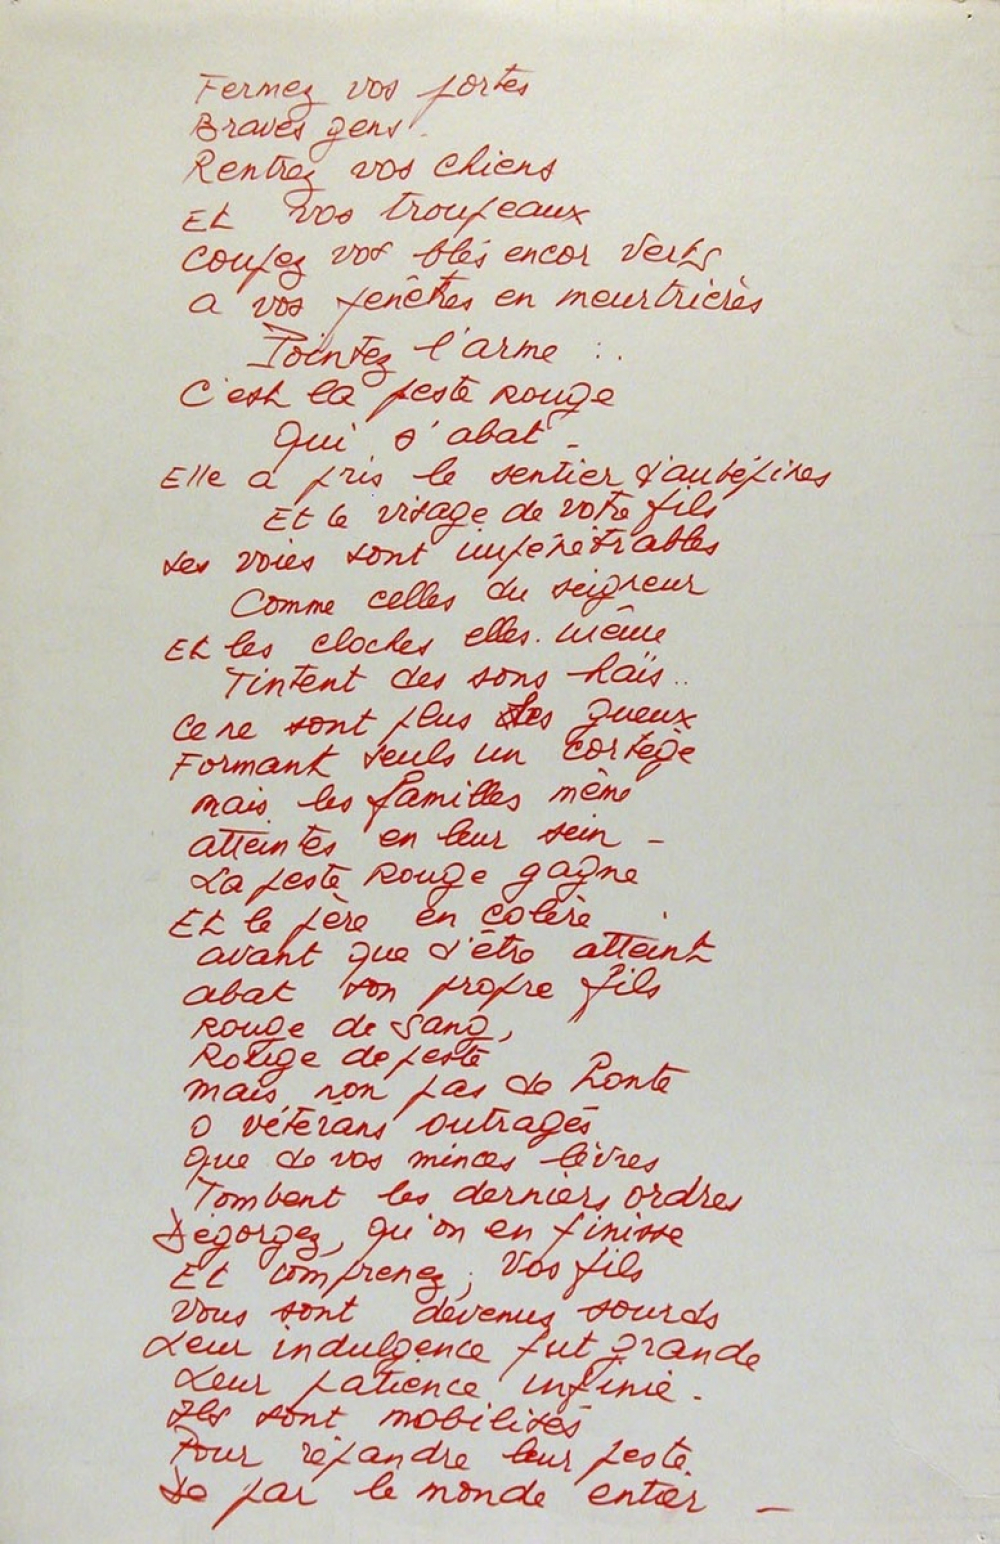 Fermez vos portes
Braves gens.
Rentrez vos chiens
Et vos troupeaux
Coupez vos blés encor verts
A vos fenêtres en meurtrières
Pointez l'arme :.
C'est la peste rouge
Qui s'abat -
Elle a pris le sentier d'aubépines
Et le visage de votre fils
Les voies sont impénétrables
Comme celles du seigneur
Et les cloches elles-même
Tintent des sons haïs..
Ce ne sont plus les gueux
Formant seuls un cortège
mais les familles même
atteintes en leur sein -
La peste Rouge gagne
Et le père en colère
avant que d'être atteint
abat son propre fils
Rouge de sang,
Rouge de peste
mais non pas de honte
O vétérans outragés
Que de vos minces lèvres
Tombent les derniers ordres
Dégorgez, qu'on en finisse
Et comprenez, vos fils
Vous sont devenus sourds
Leur indulgence fut grande
Leur patience infinie -
Ils sont mobilisés
Pour répandre leur peste
De par le monde entier -